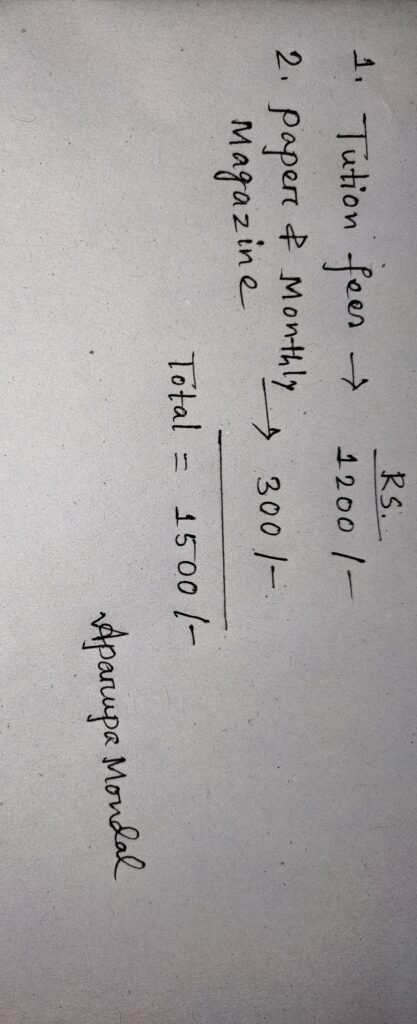 RS.
1. Tution fees → 1200/-
2. Paper & Monthly → 300/-
Magazine
Total = 1500/-
Aparupa Mondal